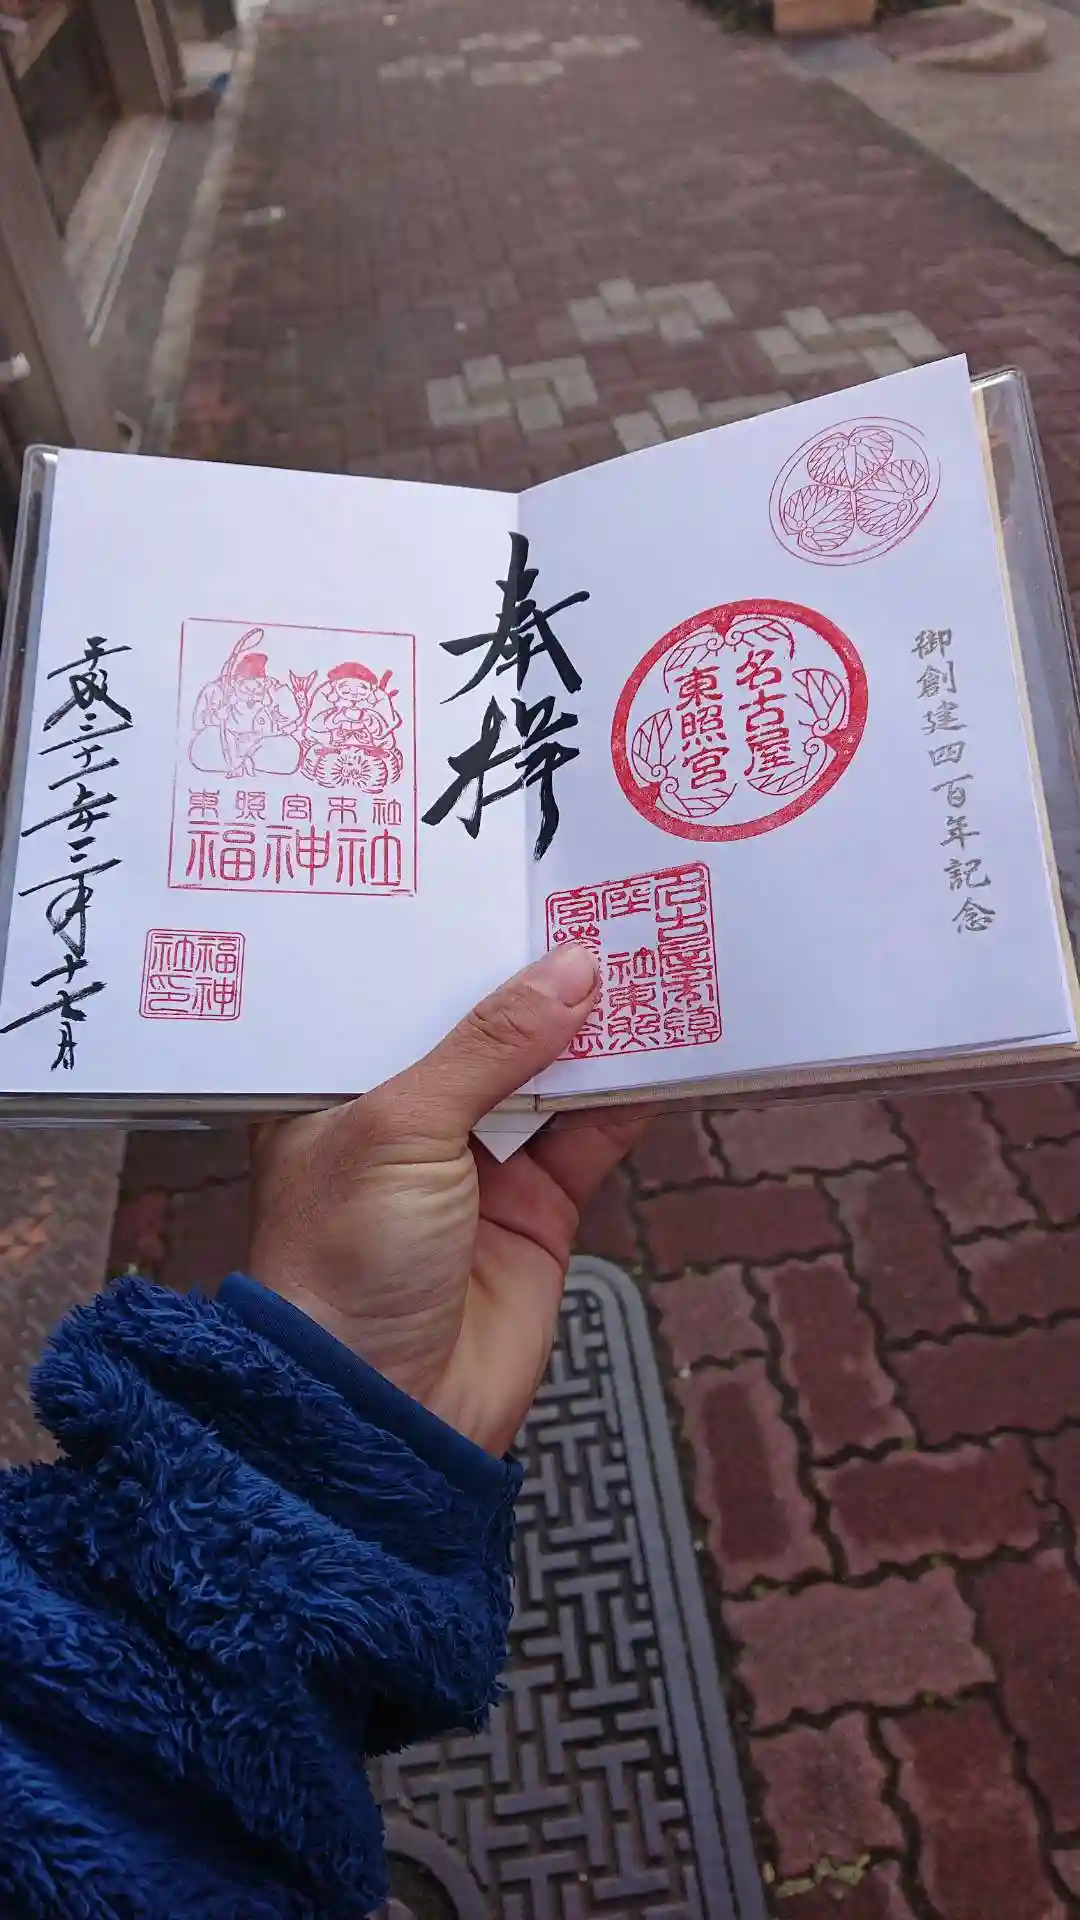 御創建四百年記念
名古屋
東照宮
名古屋末鎮
社東照
奉拝
東照宮末社
福神社
福神
社印
平成三十一年三月十七日